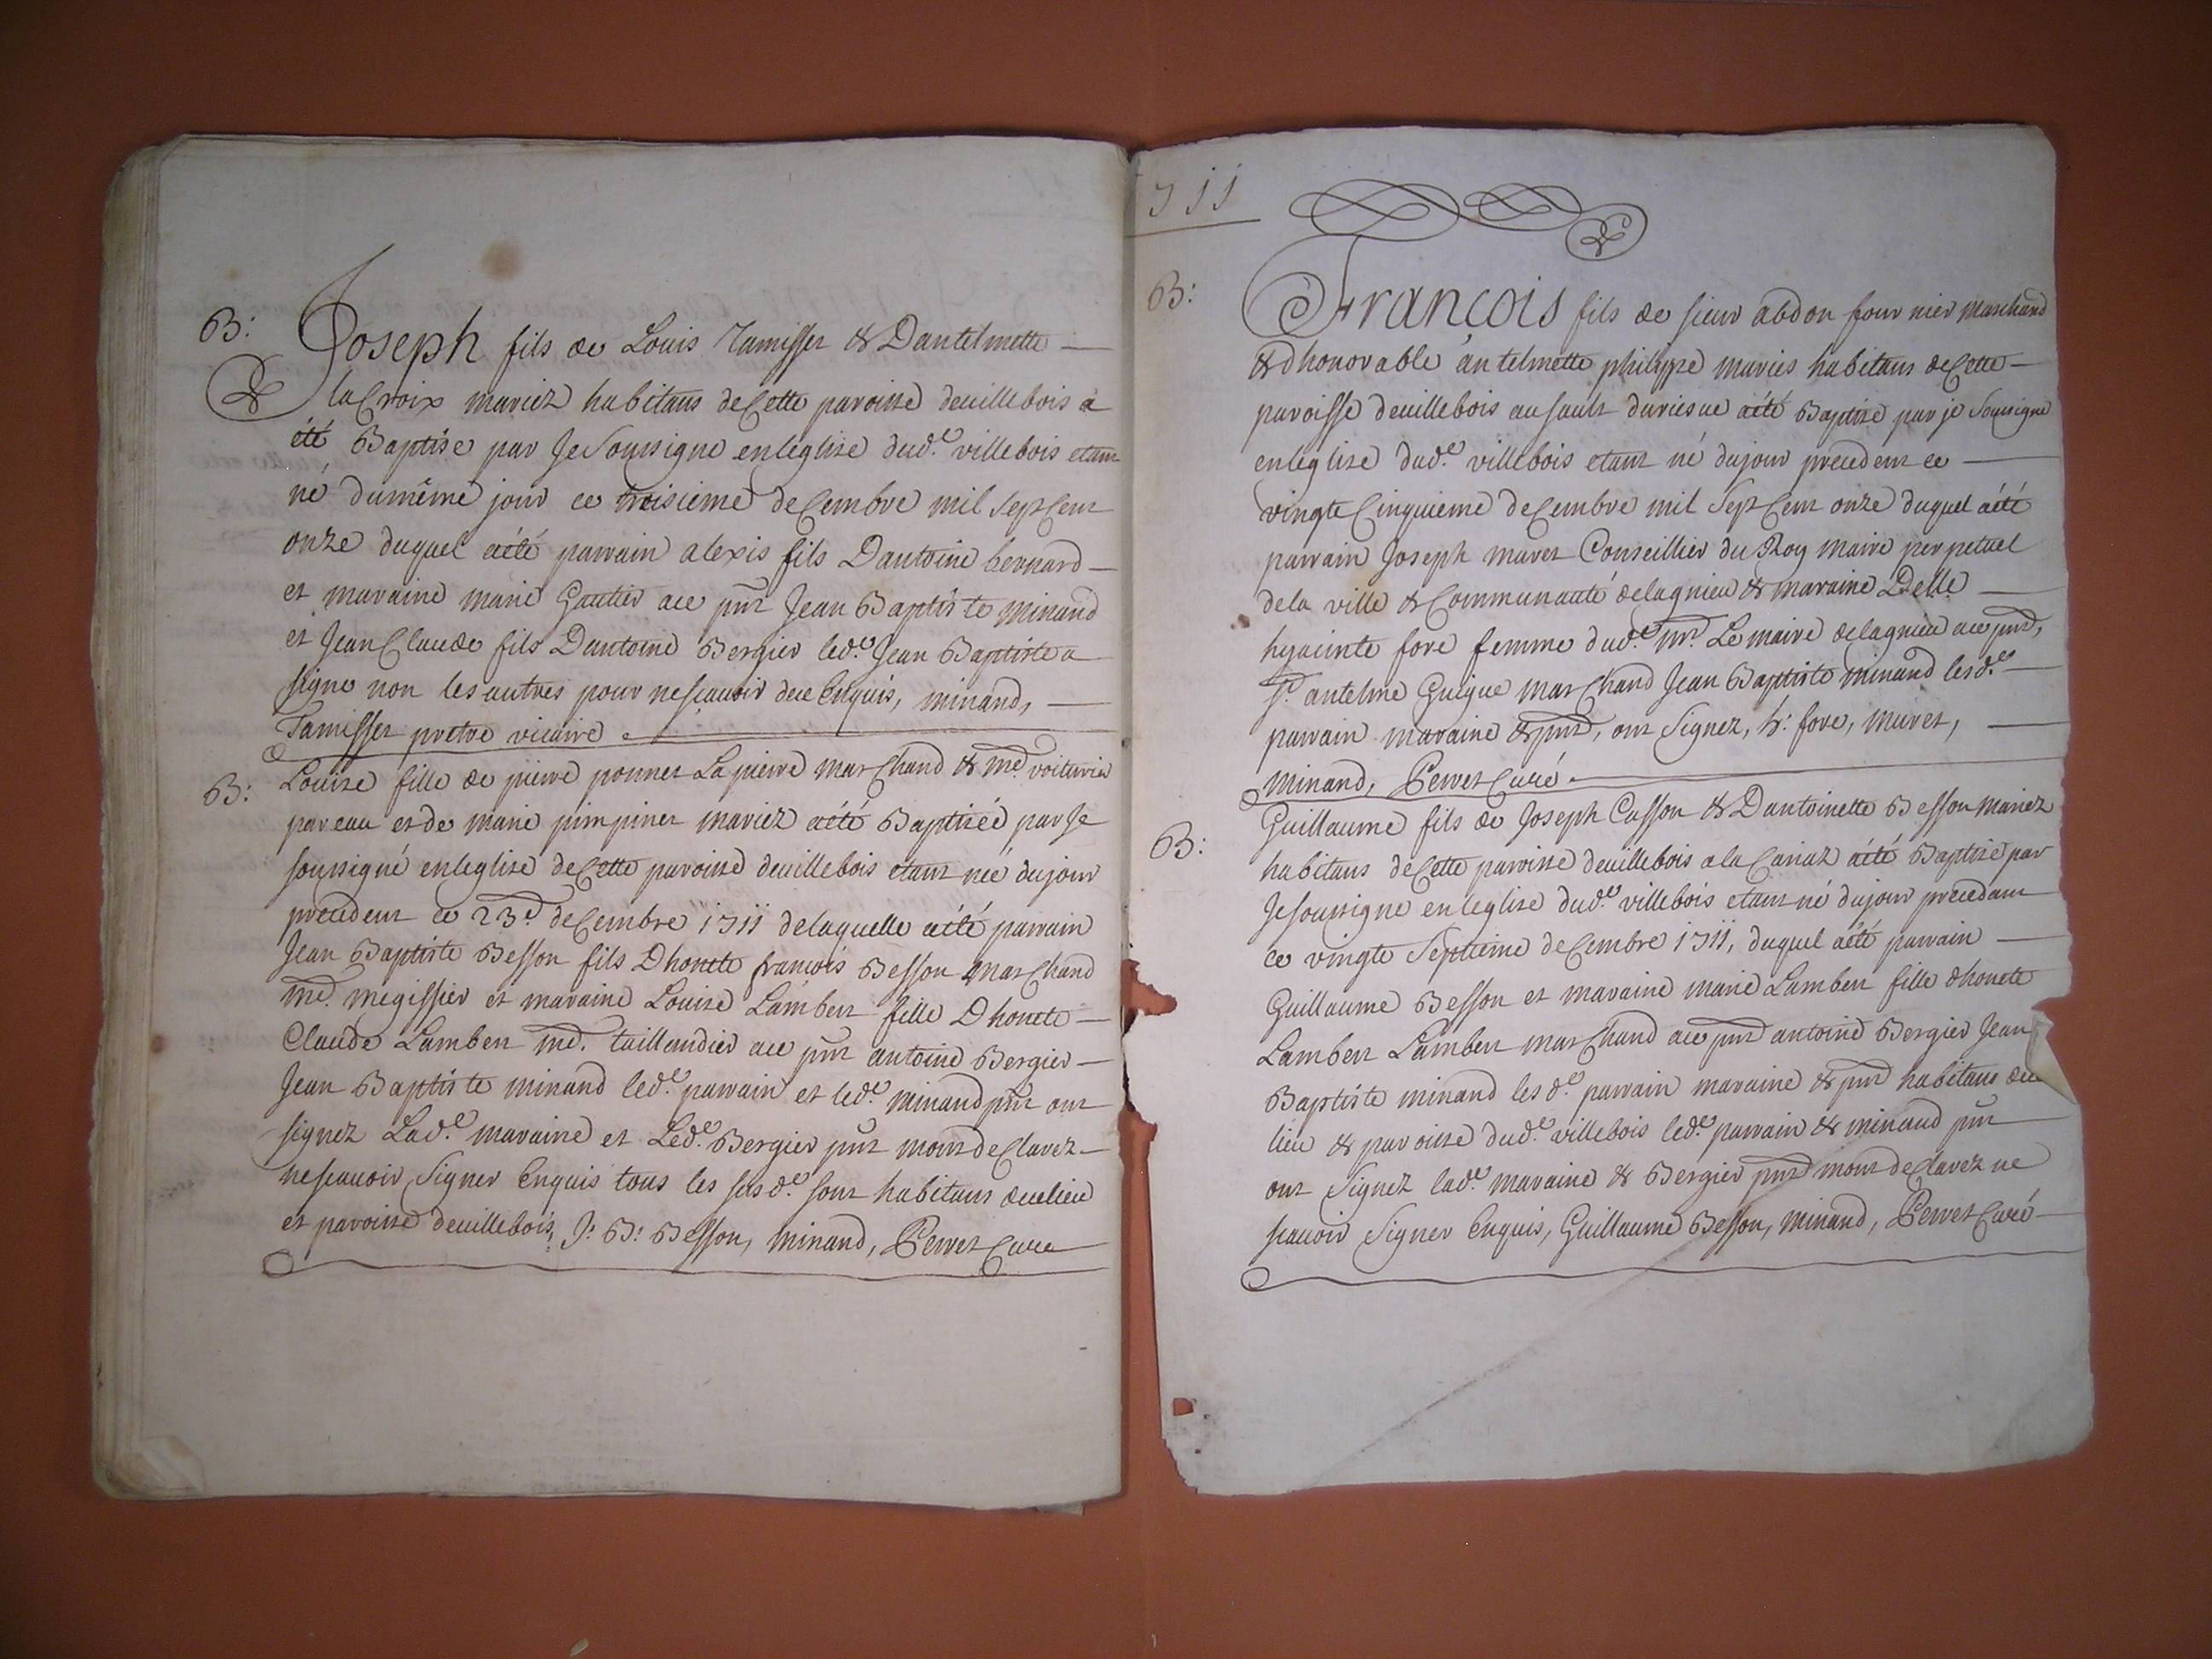 B: Joseph fils de Louis Tamisser & Dantelmette
la Croix mariez habitans de Cette paroisse deuillebois a
été Baptisé par Je Soussigne en leglise dud.e villebois etant
né du même jour ce troisieme deCembre mil Sept Cent
onze duquel aété parrain alexis fils Dantoine bernard
et maraine marie Gautier ace pnt Jean Baptiste minand
et Jean Claude fils Dantoine Bergier led.e Jean Baptiste a
signe non les autres pour nescauoir dece Enquis, minand,
Tamisser pretre vicaire
B: Louise fille de pierre ponnet La pierre marChand & md. voiturier
par eau et de marie pimpinet mariez aété Baptizée par Je
soussigné en leglise de Cette paroisse deuillebois etant née dujour
precedent ce 23e deCembre 1711 delaquelle aété parrain
Jean Baptiste Besson fils Dhonete francois Besson marChand
md. megissier et maraine Louise Lambert fille Dhonete
Claude Lambert md. taillandier ace pnt antoine Bergier
Jean Baptiste minand led.e parrain et led.e minand pnt ont
signez Lad.e maraine et Led.e Bergier pnt m'ont deClarez
nescauoir Signer Enquis tous les susd.e sont habitans dece lieu
et paroisse deuillebois, J: B: Besson, minand, Perret Curé
1711
B: François fils de sieur abdon fournier marchand
& dhonorable antelmette philippe mariés habitans de Cette
paroisse deuillebois au sault duriesue aété Baptizé par je Soussigné
en leglise dud.e villebois etant né dujour precedent ce
vingte Cinquieme deCembre mil Sept Cent onze duquel aété
parrain Joseph muret Conseillier du Roy maire perpetuel
dela ville & Communauté delagnieu & maraine Delle
hyacinte fore femme dud.e mr. Le maire delagnieu ace pnt,
sr. antelme Guigue marChand Jean Baptiste minand lesd.es
parrain maraine & pnt, ont Signez, h: fore, muret,
minand, Perret Curé
B: Guillaume fils de Joseph Casson & Dantoinette Besson mariez
habitans de Cette paroisse deuillebois a la Cariaz aété Baptizé par
Je soussigne en leglise dud.e villebois etant né dujour precedant
ce vingte Septieme deCembre 1711, duquel aété parrain
Guillaume Besson et maraine marie Lambert fille dhonete
Lambert Lambert marChand ace pnt antoine Bergier Jean
Baptiste minand lesd.e parrain maraine & pnt habitans dece
lieu & paroisse dud.e villebois led.e parrain & minand pnt
ont Signez lad.e maraine & Bergier pnt m'ont deClarez ne
scauoir Signer Enquis, Guillaume Besson, minand, Perret Curé